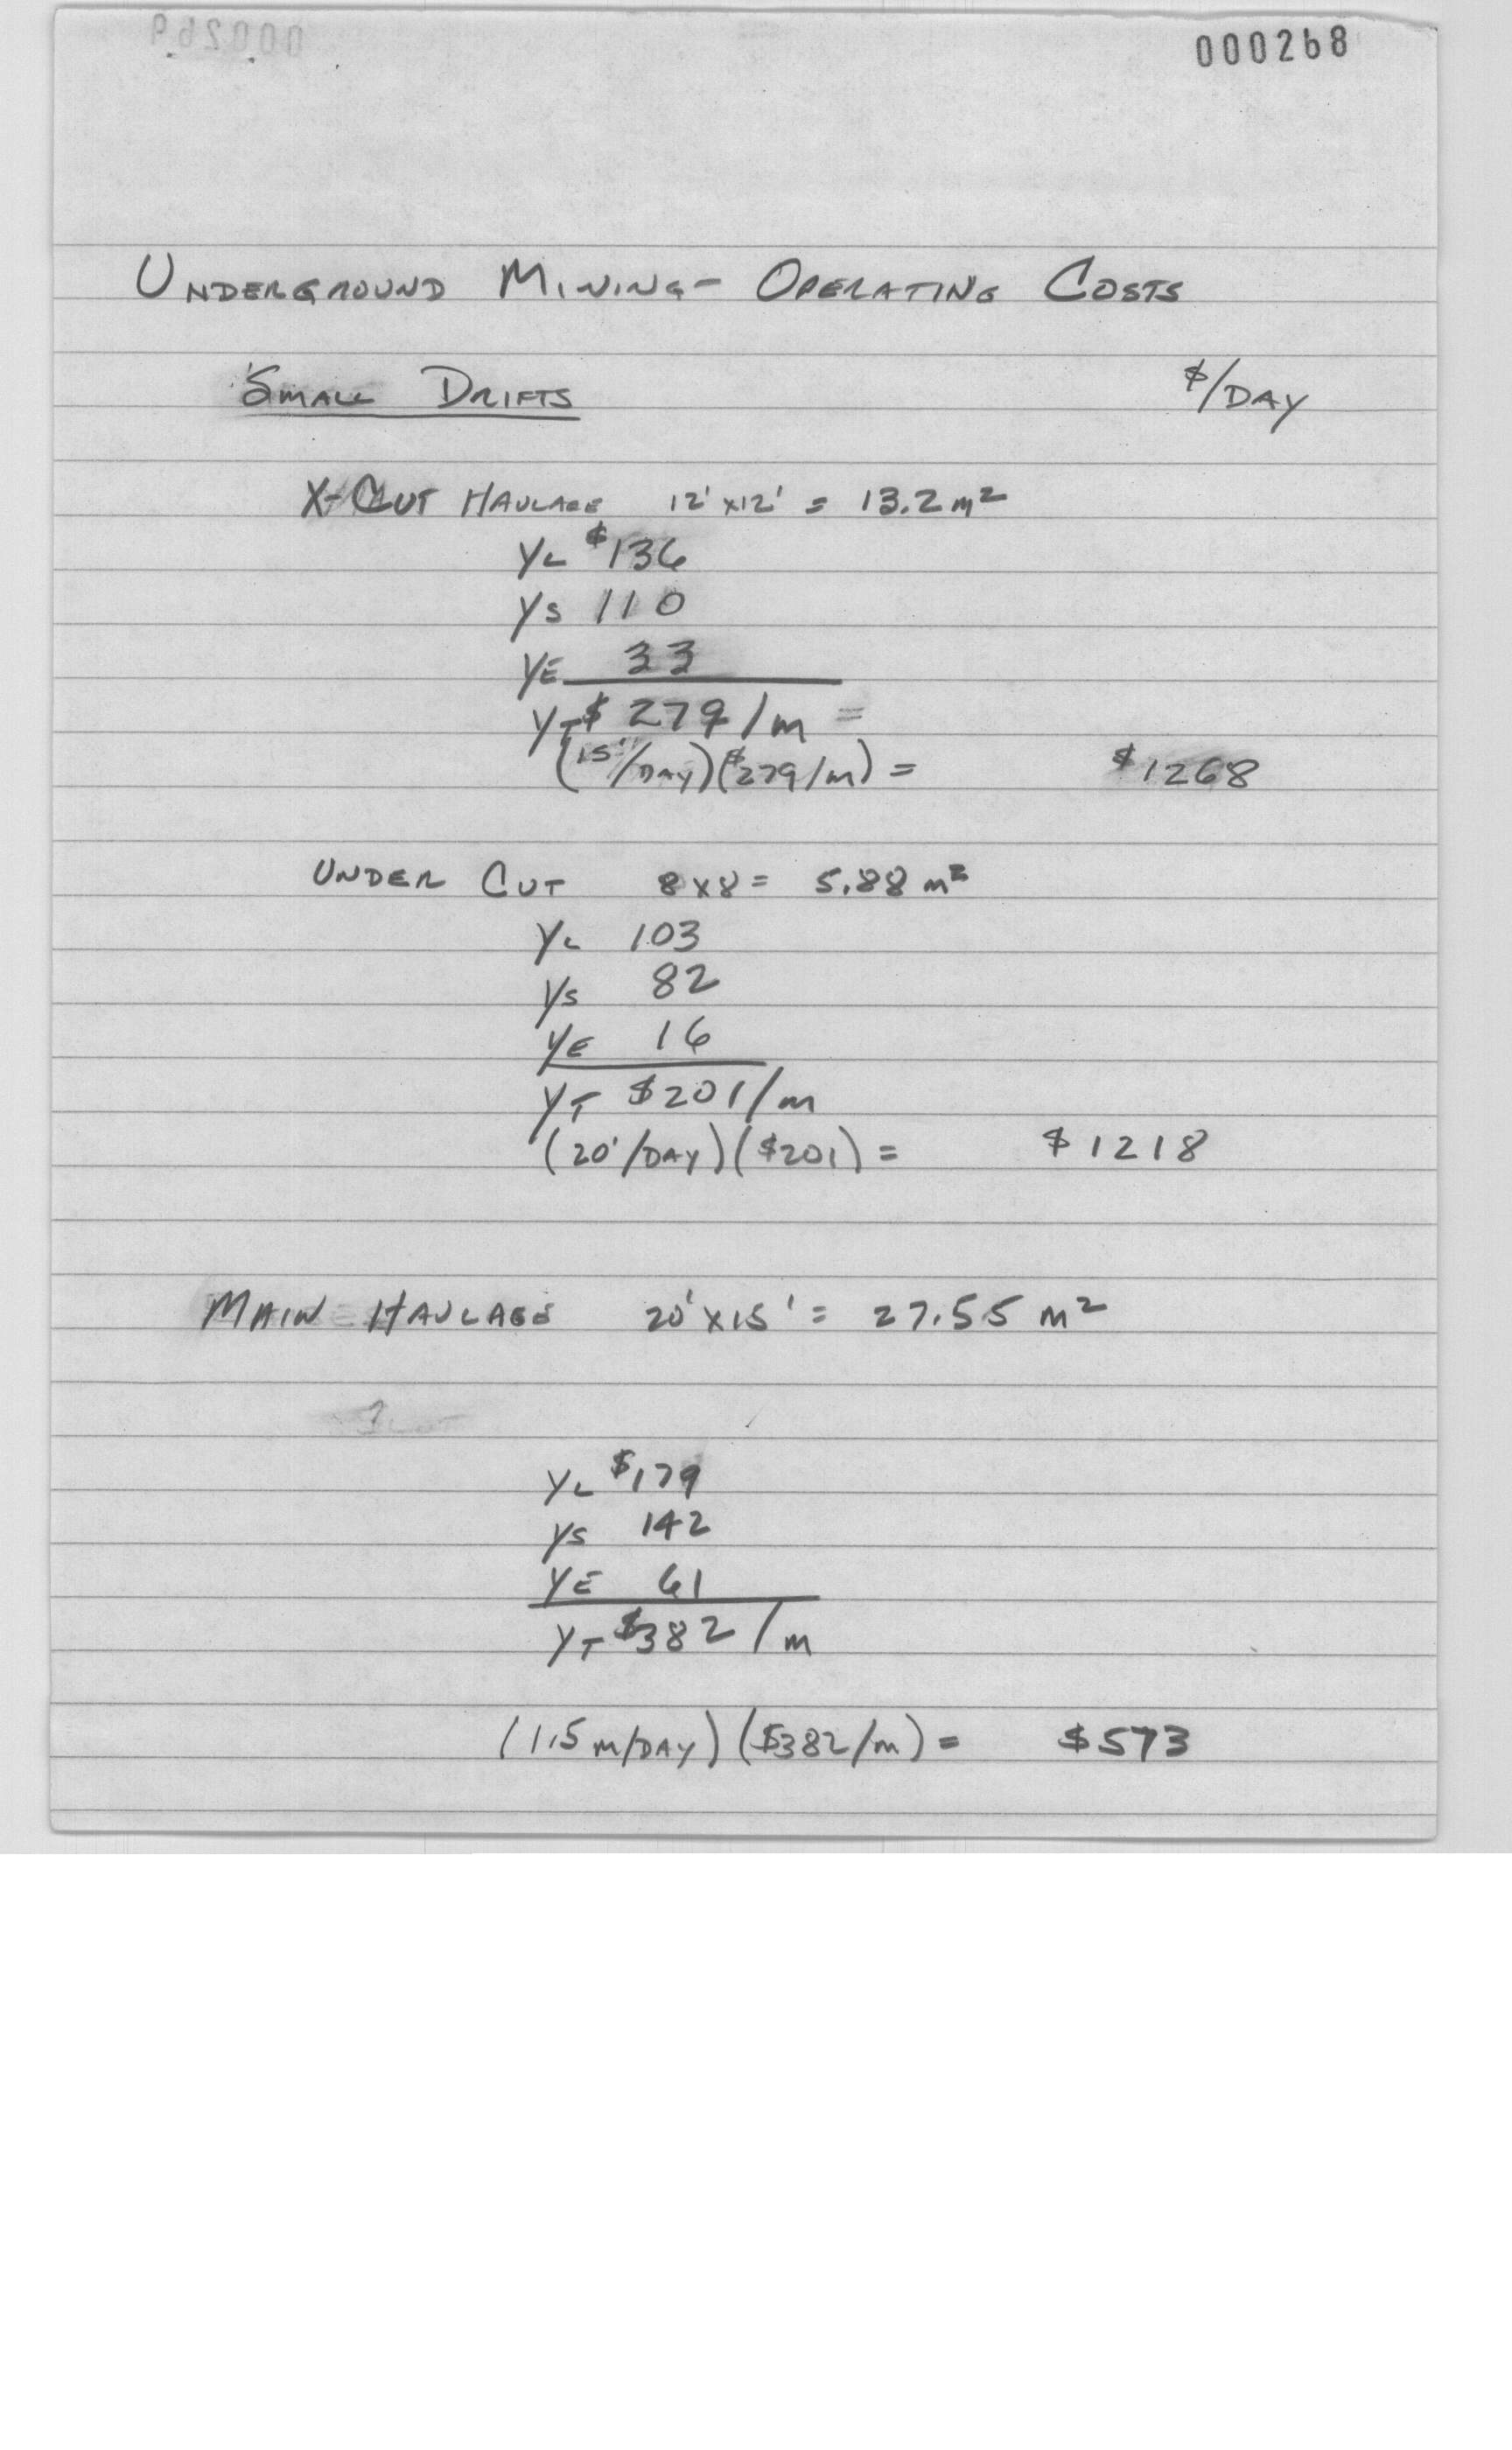 000268
UNDERGROUND MINING - OPERATING COSTS
SMALL DRIFTS $/DAY
X-CUT HAULAGE 12' x12' = 13.2 m²
YL $136
YS 110
YE 33
YT $ 279/m =
(15'/DAY)($279/m) = $1268
UNDER CUT 8x8 = 5.88 m²
YL 103
YS 82
YE 16
YT $201/m
(20'/DAY)($201) = $1218
MAIN HAULAGE 20'x15' = 27.55 m²
YL $179
YS 142
YE 61
YT $382/m
(1.5 m/DAY)($382/m) = $573